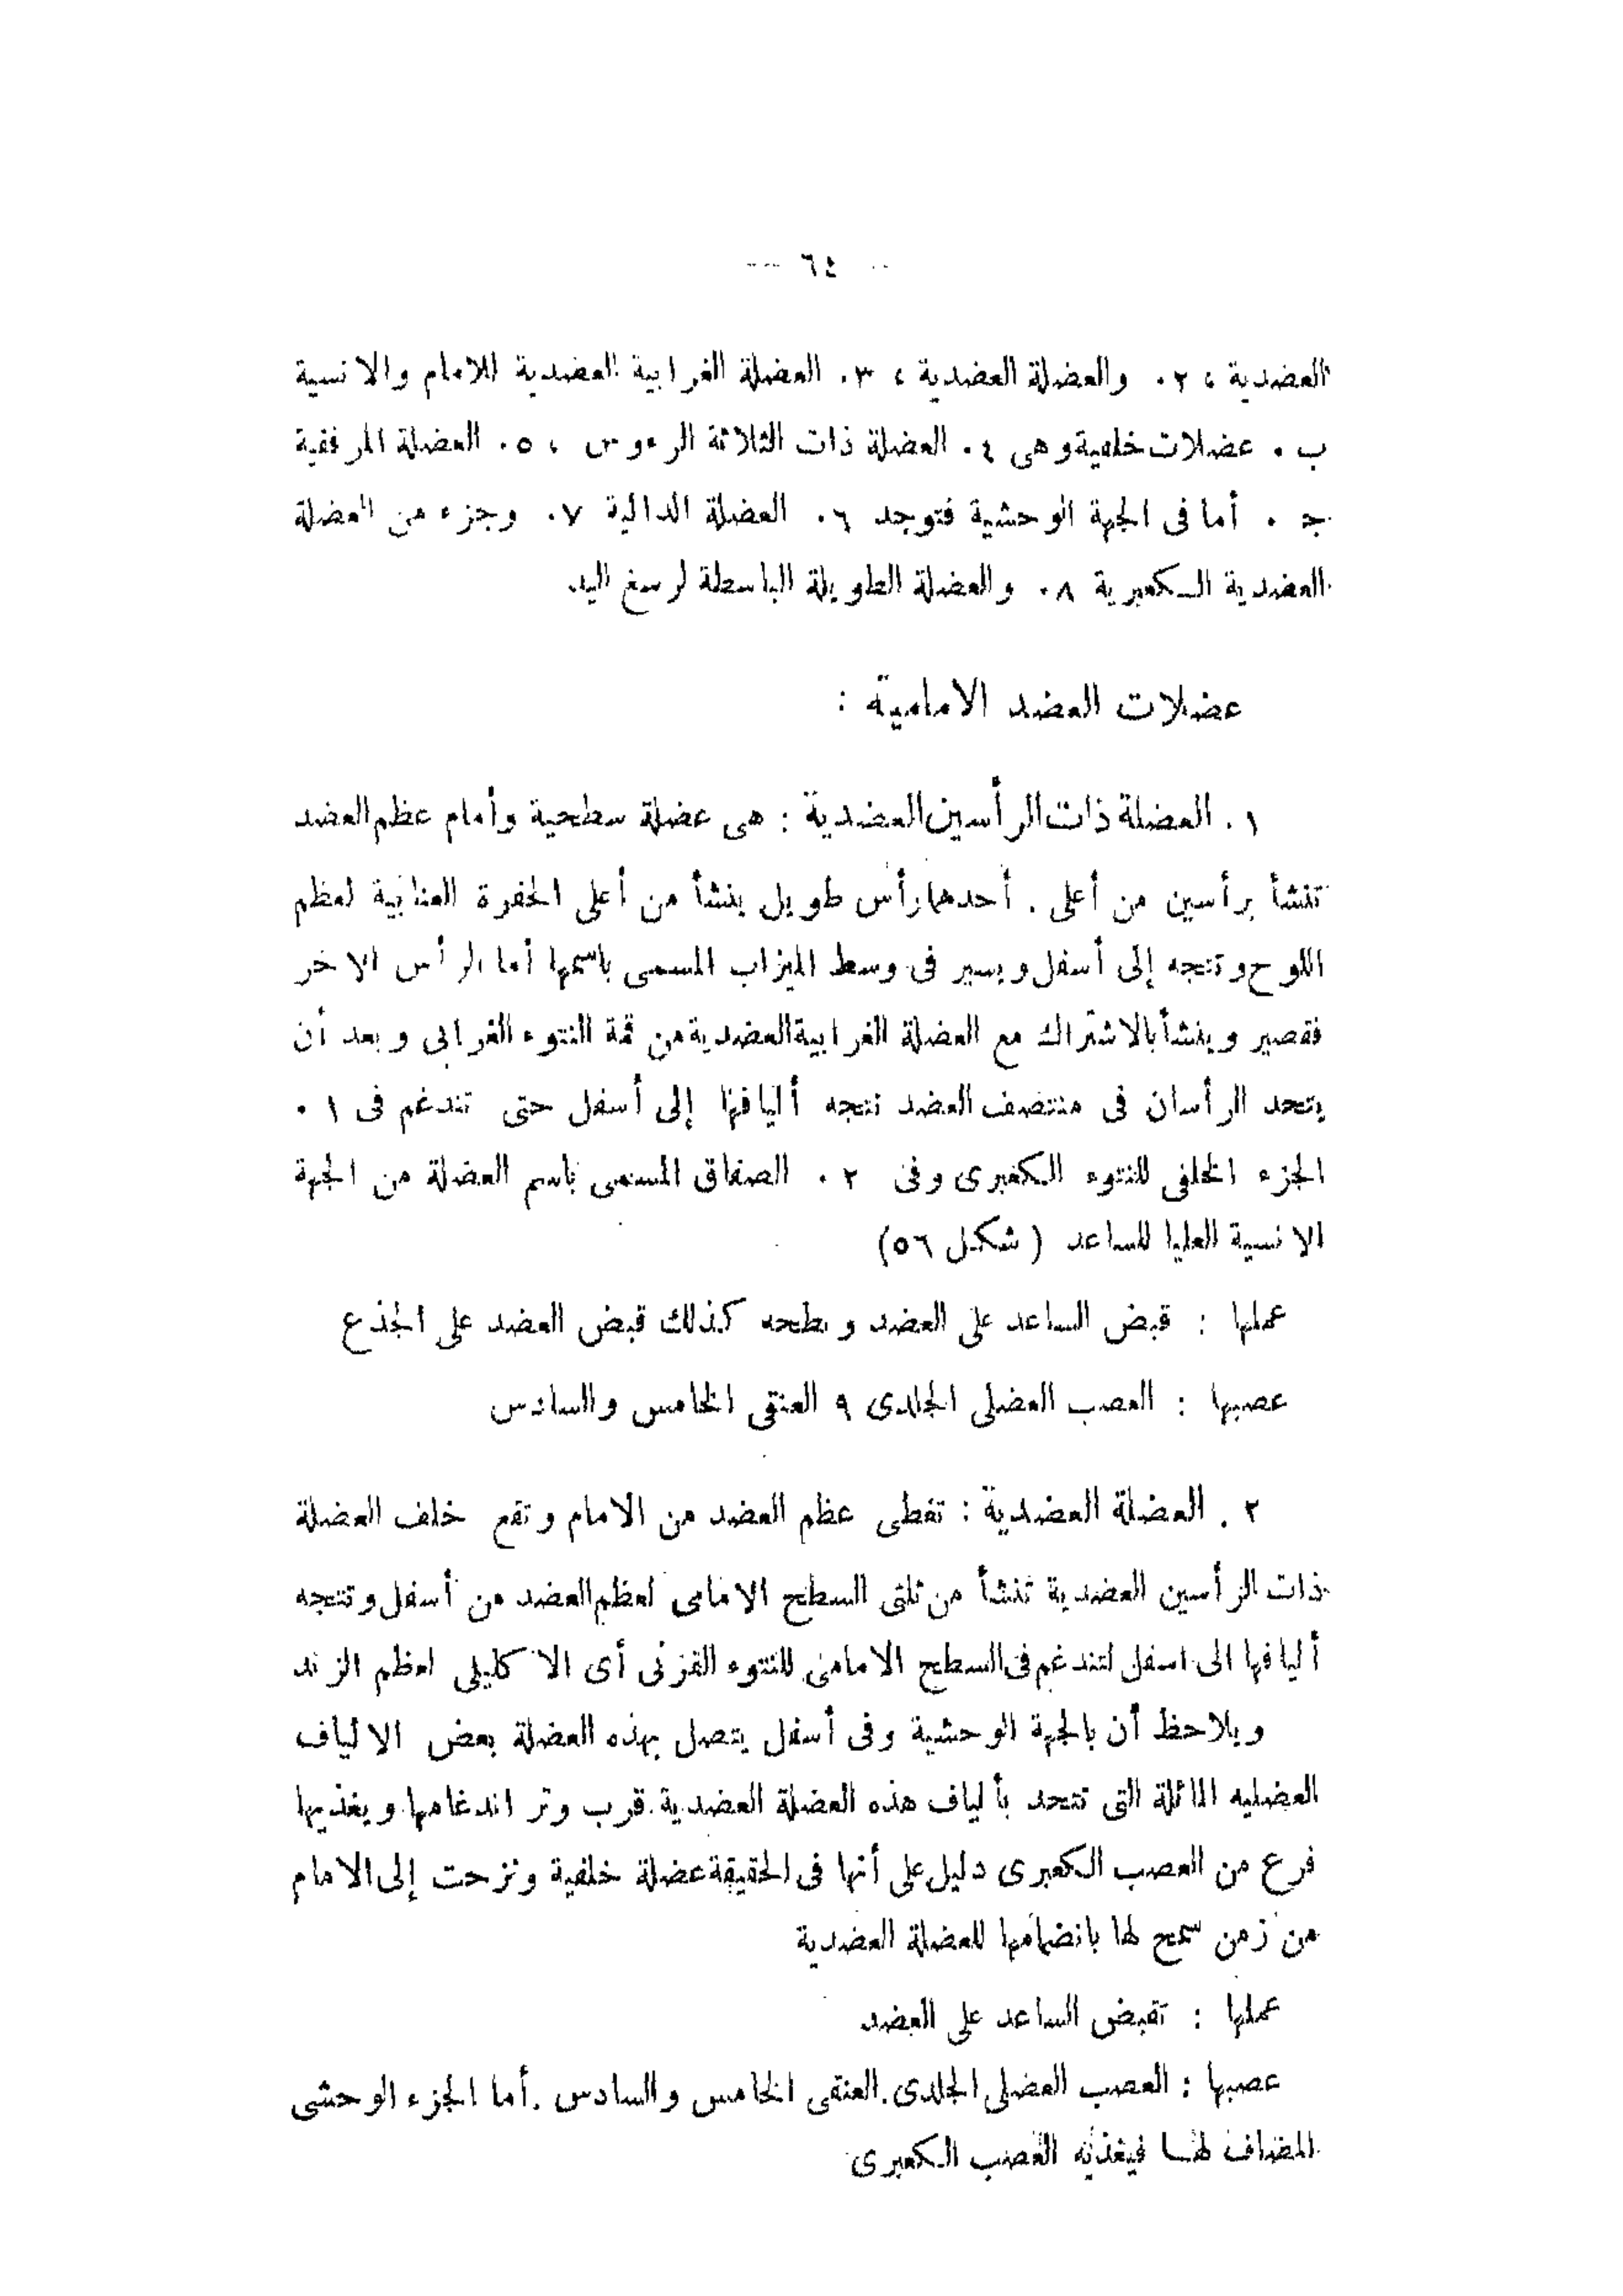 — ٦٤ —
العضدية ، ٢. والعضلة العضدية ، ٣. العضلة الغرابية العضدية للامام والانسية
ب . عضلات خلفية وهى ٤. العضلة ذات الثلاثة الرءوس ، ٥. العضلة المرفقية
ج . أما فى الجهة الوحشية فتوجد ٦. العضلة الدالية ٧. وجزء من العضلة
العضدية الكعبرية ٨. والعضلة الطويلة الباسطة لرسغ اليد
عضلات العضد الامامية :
١. العضلة ذات الرأسين العضدية : هى عضلة سطحية وأمام عظم العضد
تنشأ برأسين من أعلى . أحدهما رأس طويل ينشأ من أعلى الحفرة العنابية لعظم
اللوح وتتجه إلى أسفل ويسير فى وسط الميزاب المسمى باسمها أما الرأس الاخر
فقصير وينشأ بالاشتراك مع العضلة الغرابية العضدية من قمة النتوء الغرابى وبعد أن
يتحد الرأسان فى منتصف العضد تتجه أليافها إلى أسفل حتى تندغم فى ١ .
الجزء الخلفى للنتوء الكعبرى وفى ٢ . الصفاق المسمى باسم العضلة من الجهة
الانسية العليا للساعد ( شكل ٥٦)
عملها : قبض الساعد على العضد وبطحه كذلك قبض العضد على الجذع
عصبها : العصب العضلى الجلدى ٩ العنقى الخامس والسادس
٢ . العضلة العضدية : تغطى عظم العضد من الامام وتقع خلف العضلة
ذات الرأسين العضدية تنشأ من ثلثى السطح الامامى لعظم العضد من أسفل وتتجه
أليافها الى اسفل لتندغم فى السطح الامامى للنتوء القرنى أى الاكليلى لعظم الزند
ويلاحظ أن بالجهة الوحشية وفى أسفل يتصل بهذه العضلة بعض الالياف
العضليه المائلة التى تتحد بألياف هذه العضلة العضدية قرب وتر اندغامها ويغذيها
فرع من العصب الكعبرى دليل على أنها فى الحقيقة عضلة خلفية ونزحت إلى الامام
من زمن سمح لها بانضمامها للعضلة العضدية
عملها : تقبض الساعد على العضد
عصبها : العصب العضلى الجلدى . العنقى الخامس والسادس . أما الجزء الوحشى
المضاف لها فيغذيه العصب الكعبرى